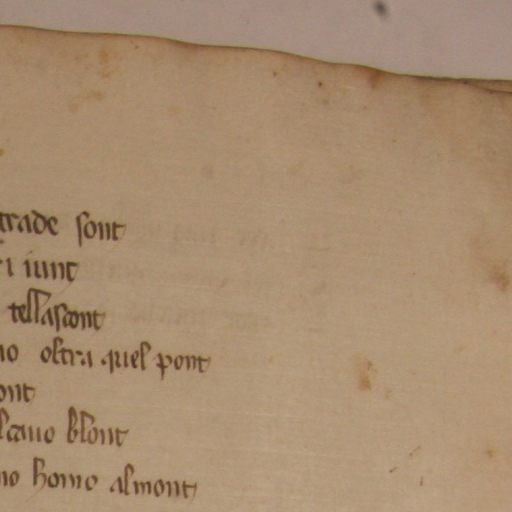 trade sont
ri iunt
tellascont
no oltra quel pont
ont
lcauo blont
no homo almont